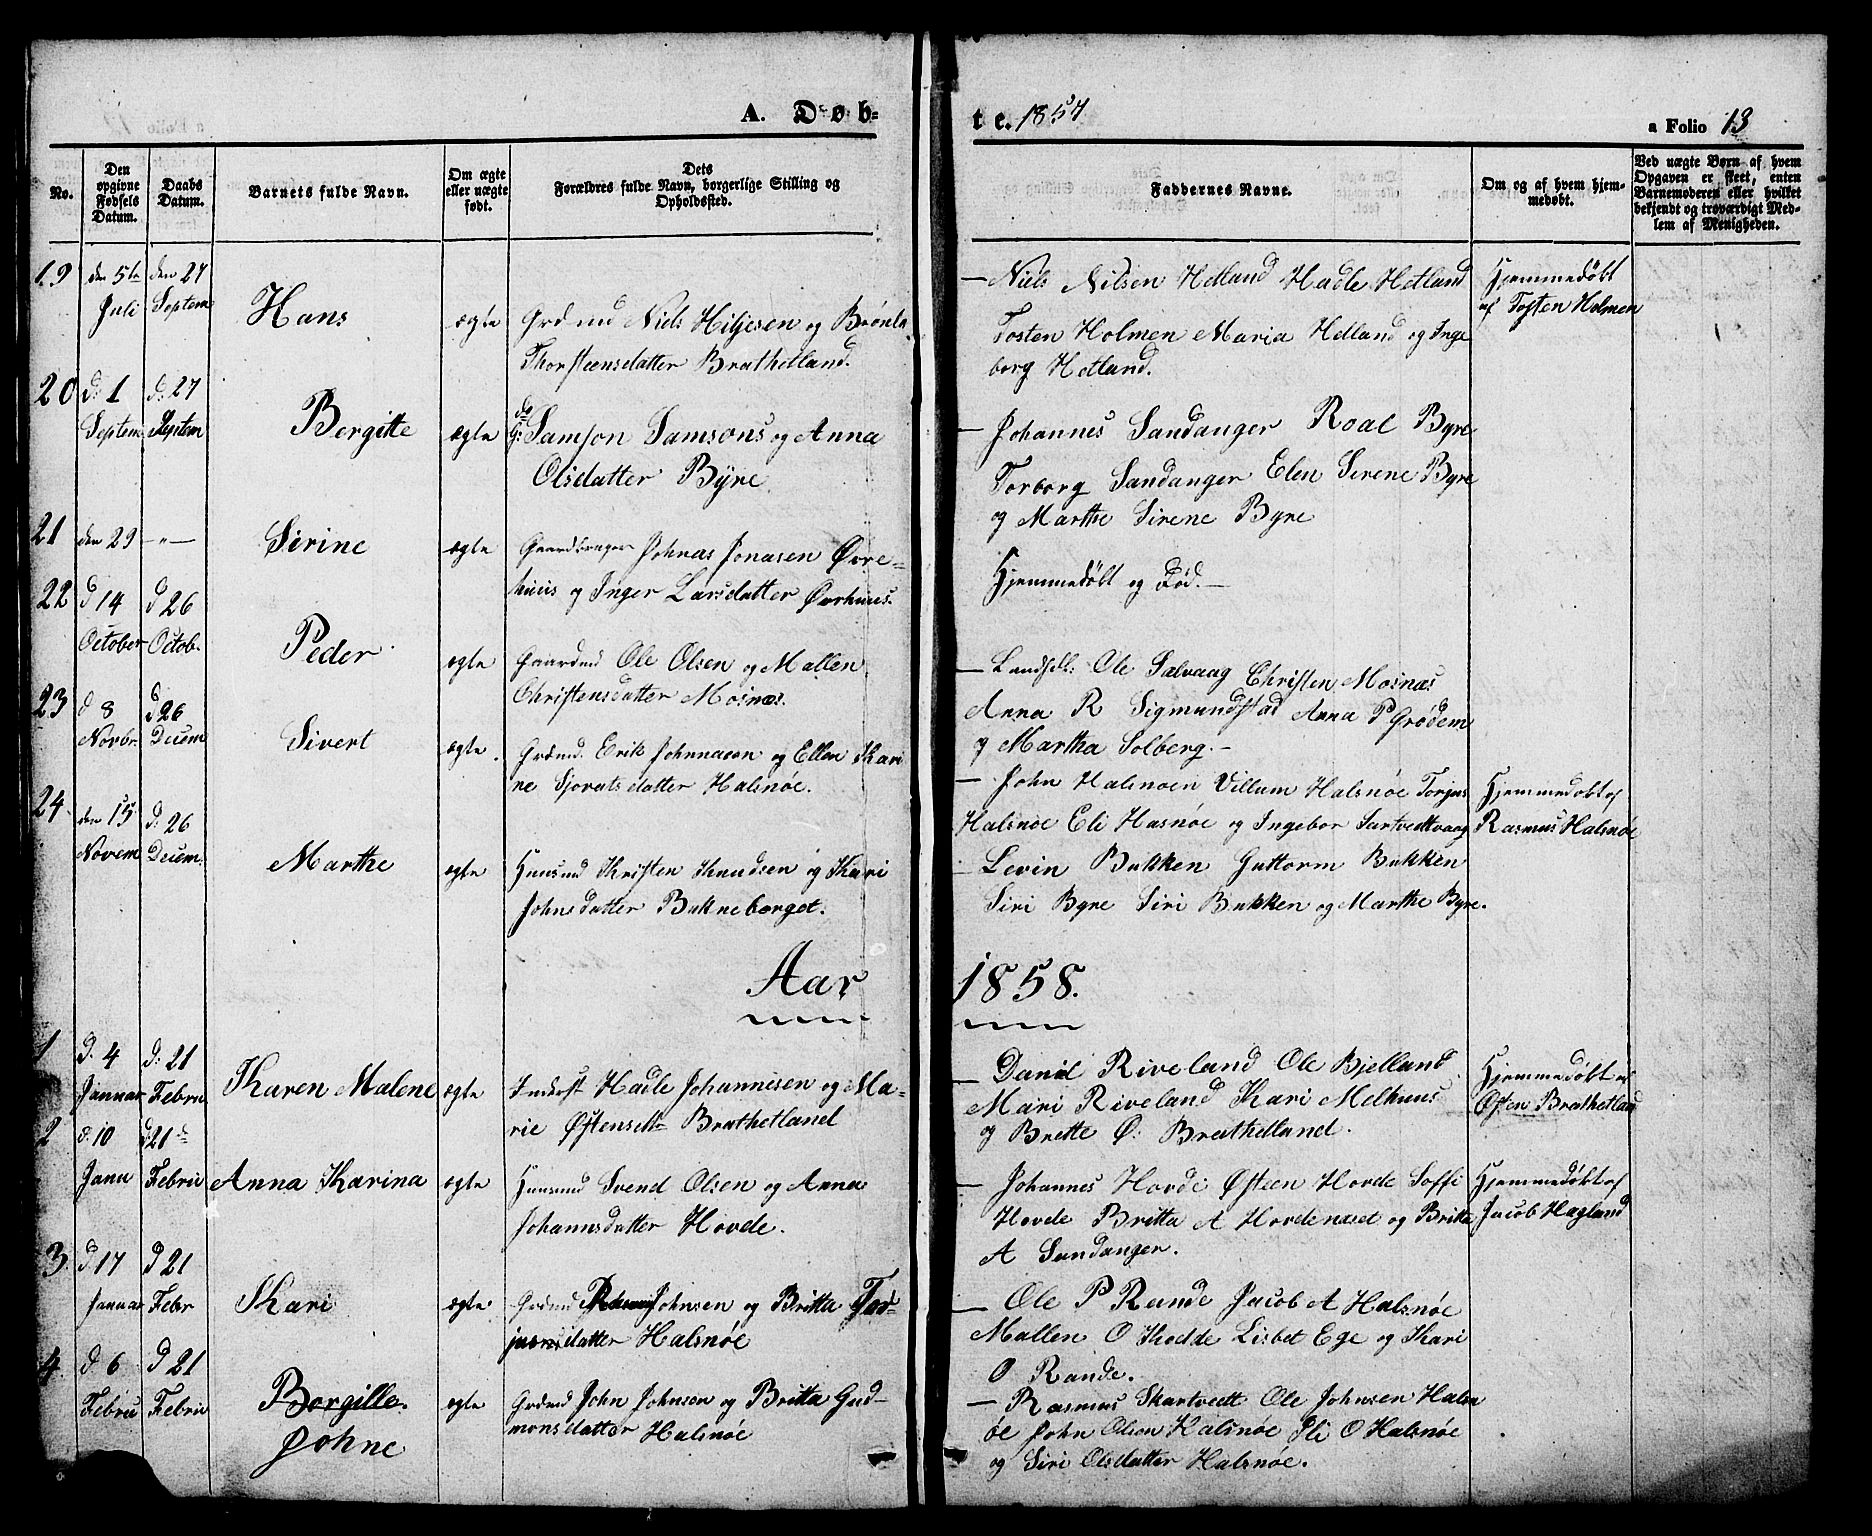 A. Døb= te. 1857
a Folio 13
No.
Den opgivne Fødsels Datum.
Daabs Datum.
Barnets fulde Navn.
Om ægte eller uægte født.
Dets Forældres fulde Navn, borgerlige Stilling og Opholdssted.
Faddernes Navne.
Om og af hvem hjemmedøbt.
Ved uægte Børn af hvem Opgaven er skeet, enten Barnemoderen eller hvilket bekjendt og troværdigt Medlem af Menigheden.
19 den 5te Juli den 27 Septem Hans ægte
Grdmd Niels Hiljesen og Brønla
Thorsteensdatter Brathetland.
— Niels Nilsen Hetland Hadle Hetland
Tosten Holmen Maria Hetland og Inge
borg Hetland.
Hjemmedøbt
af Tosten Holmen
20 d: 1 Septem d: 27 Septem Bergitte ægte
do G: Samson Samsons og Anna
Olsdatter Byre
— Johannes Sandanger Roal Byre
Torborg Sandanger Elen Serene Byre
og Marthe Sirene Byre
21 den 29 —"— Sirine ægte
Gaardbruger Johnas Jonasen Øvre-
huus og Inger Larsdatter Øvrhuus.
Hjemmedøbt og Død.—
22 d 14 October d 26 Octob. Peder ægte
Gaardmd Ole Olsen og Mallen
Christensdatter Mosnæs.
— Ole Salvaag Christen Mosnæs
Anna R Sigmundstad Anna P Grødem
og Martha Solberg.—
23 d 8 Novbr. d 26 Decem Sivert ægte.
Grdmd. Erik Johnnacon og Ellen Kari
ne Sjovatsdatter Halsnøe.
— John Halsnoen Villum Halsnøe Torjus
Halsnøe Eli Hasnøe og Ingebor Sartvedtvaag
Hjemmedøbt af
Rasmus Halsnøe
24 den 15 Novem d: 26 Decem. Marthe ægte
Huusmd Kristen Knudsen og Kari
Johnsdatter Bukneberget.
— Levin Bukken Guttorm Bukken
Siri Byre Siri Bukken og Marthe Byre.
Aar 1858.
1 d. 4 Januar d: 21 Febru Karen Malene ægte
Inderst Hadle Johannesen og Ma-
rie Østensdtr Brathetland
— David Riveland Ole Bjelland
Mari Riveland Kari Melhuus
og Brette Ø: Brathetland.
Hjemmedøbt af
Østen Brathetland
2 d: 10 Janu d 21de Febru Anna Karina ægte
Huusmd Svend Olsen og Anna
Johannsdatter Hovde.
— Johannes Hovde Østeen Hovde Soffi
Hovde Britta A Hovdenæset og Britta
A Sandanger.
Hjemmedøbt af
Jacob Hagland
3. d 17 Januar d 21 Febr Kari ægte
Grdmd Johnsen og Britta Tor-
jusensdatter Halsnøe
— Ole P Rande Jacob A Halsnøe
Mallen O Kodde Lisbet Ege og Kari
O Rande.
4. d 6 Febru d 21 Febru Bergille Johne ægte
Grdmd John Johnsen og Britta Gud-
monsdatter Halsnøe
— Rasmus Skartvedt Ole Johnsen Halsn
øe John Olsen Halsnøe Eli O Halsnøe
og Siri Olsdatter Halsnøe.